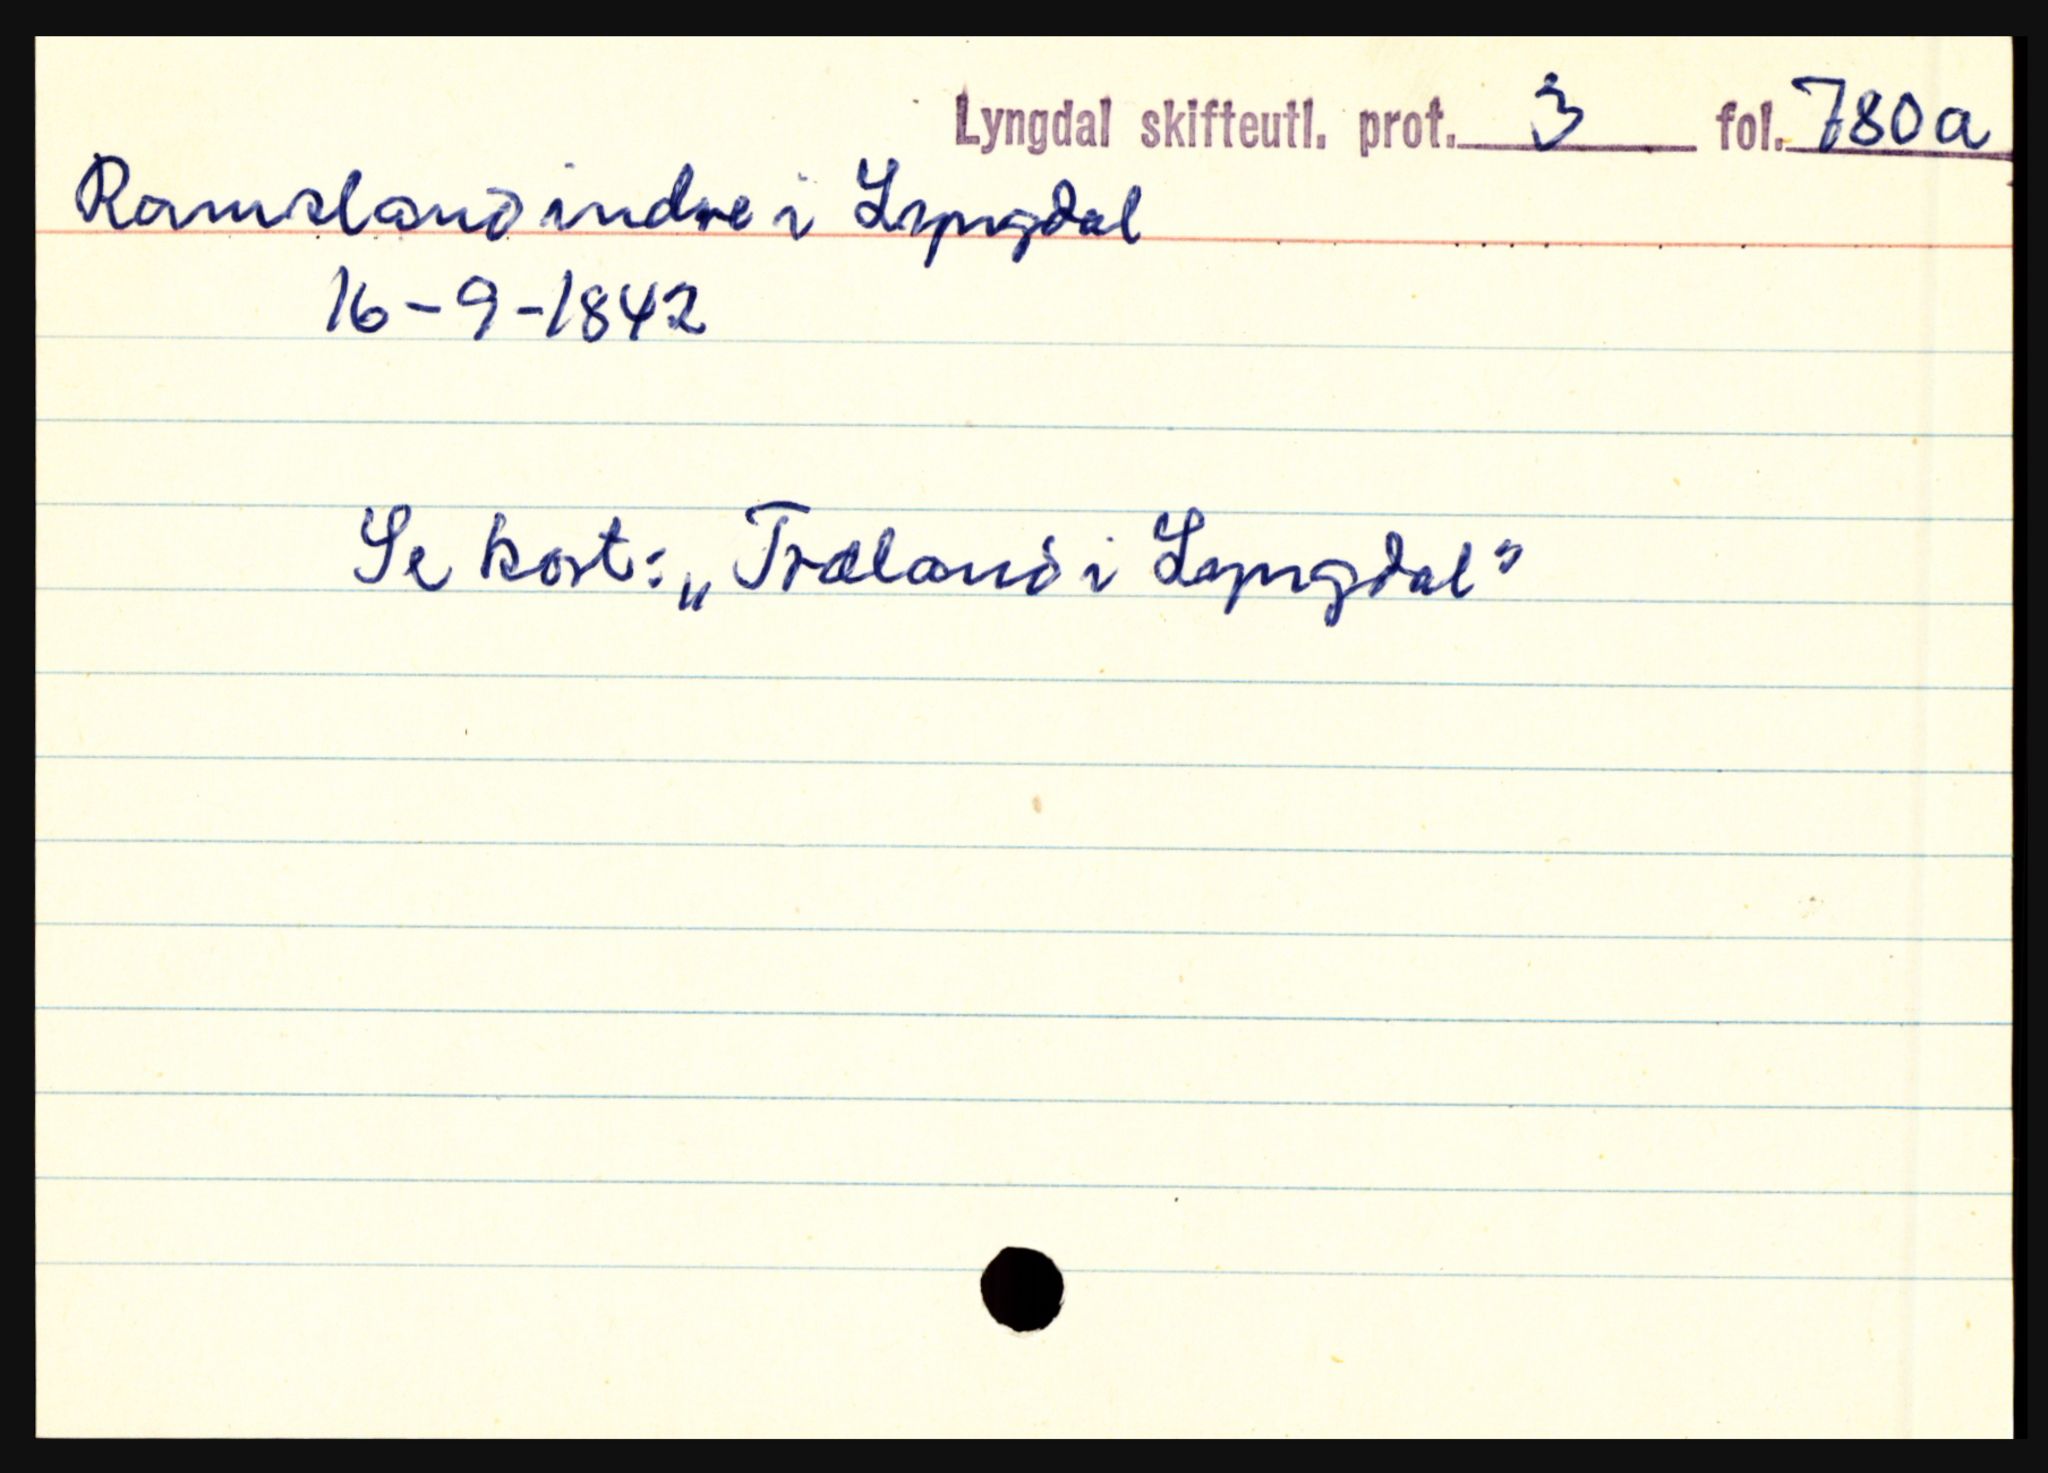 Lyngdal skifteutl. prot. 3 fol. 780a
Ramsland indre i Lyngdal
16-9-1842
Se kort: „Træland i Lyngdal"